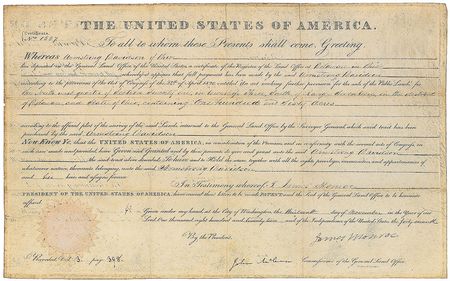 THE UNITED STATES OF AMERICA.
Certificate
No. 1557
To all to whom these Presents shall come, Greeting
Whereas Armstrong Davidson of Ohio
ha deposited in the General Land Office of the United States, a certificate of the Register of the Land Office at
whereby it appears that full payment has been made by the said Armstrong Davidson
according to the provisions of the Act of Congress of the 24th of April, entitled An act making further provision for the sale of the Public Lands, for
the quarter of Section twenty in Township Three South of Range in the district
of and State of Ohio, containing One hundred and Sixty Acres
according to the official plat of the survey of the said Lands, returned to the General Land Office by the Surveyor General, which said tract has been
purchased by the said Armstrong Davidson
Now Know Ye, that the UNITED STATES OF AMERICA, in consideration of the Premises, and in conformity with the several acts of Congress, in
such case made and provided, have Given and Granted, and by these presents do give and grant unto the said Armstrong Davidson
the said tract above described: To have and to Hold the same, together with all the rights, privileges, immunities, and appurtenances of
whatsoever nature, thereunto belonging, unto the said Armstrong Davidson
his heirs and assigns forever
In Testimony whereof, I James Monroe
PRESIDENT OF THE UNITED STATES OF AMERICA, have caused these Letters to be made PATENT, and the Seal of the General Land Office to be hereunto
affixed.
Given under my hand at the City of Washington, the day of in the Year of our
Lord One thousand eight hundred and twenty and of the Independence of the United States the Forty
By the President,
James Monroe
Recorded Vol. 3. page 398.
John McLean Commissioner of the General Land Office.